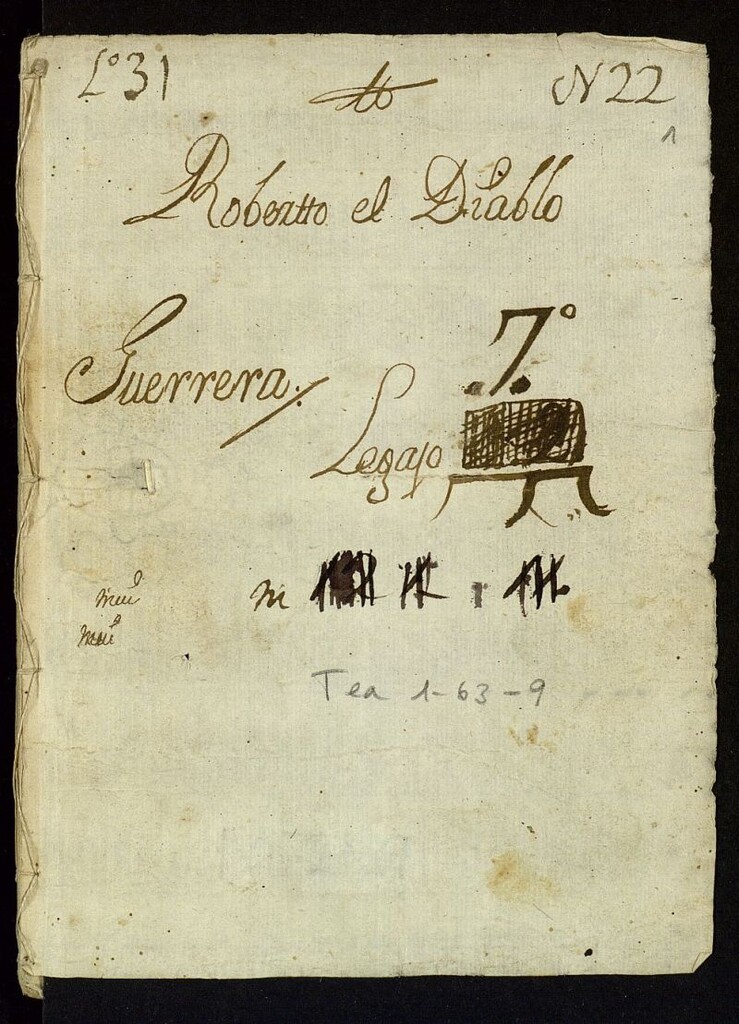 Lº 31
N 22
1
Robertto el Diablo
Guerrera./
.7.º
Legajo
m
Tea 1-63-9